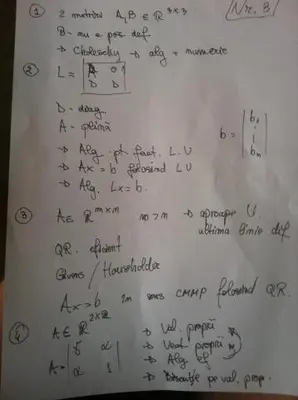 Nr. 3
① 2 matrice A, B ∈ R^3x3
B - nu e poz def.
→ Cholesky → alg + numeric
② L = | A 0 |
| D D |
D - diag
A - plină
b = | b1 ⋮ bn |
→ Alg. pt. fact. L U
→ Ax = b folosind LU
→ Alg. Lx = b.
③ A ∈ R^m×n m > n → aproape U.
ultima linie dif.
QR. eficient
Givens / Householder
Ax = b în sens CMMP folosind QR.
④ A ∈ R^2x2
A = | 5 α |
| α 1 |
→ Val. proprii
→ Vect proprii
→ Alg ef.
→ pe val. prop.